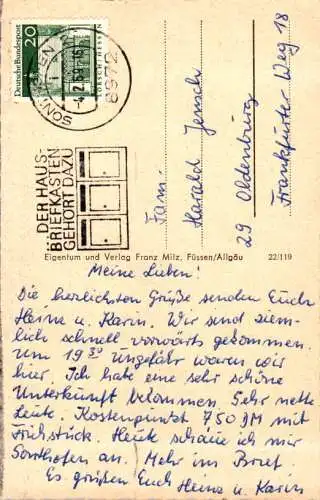 20
Deutsche Bundespost
LORSCH/HESSEN
SONTHOFEN
-4.2.69-16
8972
DER HAUS-
BRIEFKASTEN
GEHÖRT DAZU
Fam.
Harald Jensch
29 Oldenburg
Frankfurter Weg 18
Eigentum und Verlag Franz Milz, Füssen/Allgäu 22/119
Meine Lieben!
Die herzlichsten Grüße senden Euch
Heinz u. Karin. Wir sind ziem-
lich schnell vorwärts gekommen.
Um 19 30 ungefähr waren wir
hier. Ich habe eine sehr schöne
Unterkunft bekommen. Sehr nette
Leute. Kostenpunkt 7,50 DM mit
Frühstück. Heute schaue ich mir
Sonthofen an. Mehr im Brief.
Es grüßen Euch Heinz u. Karin